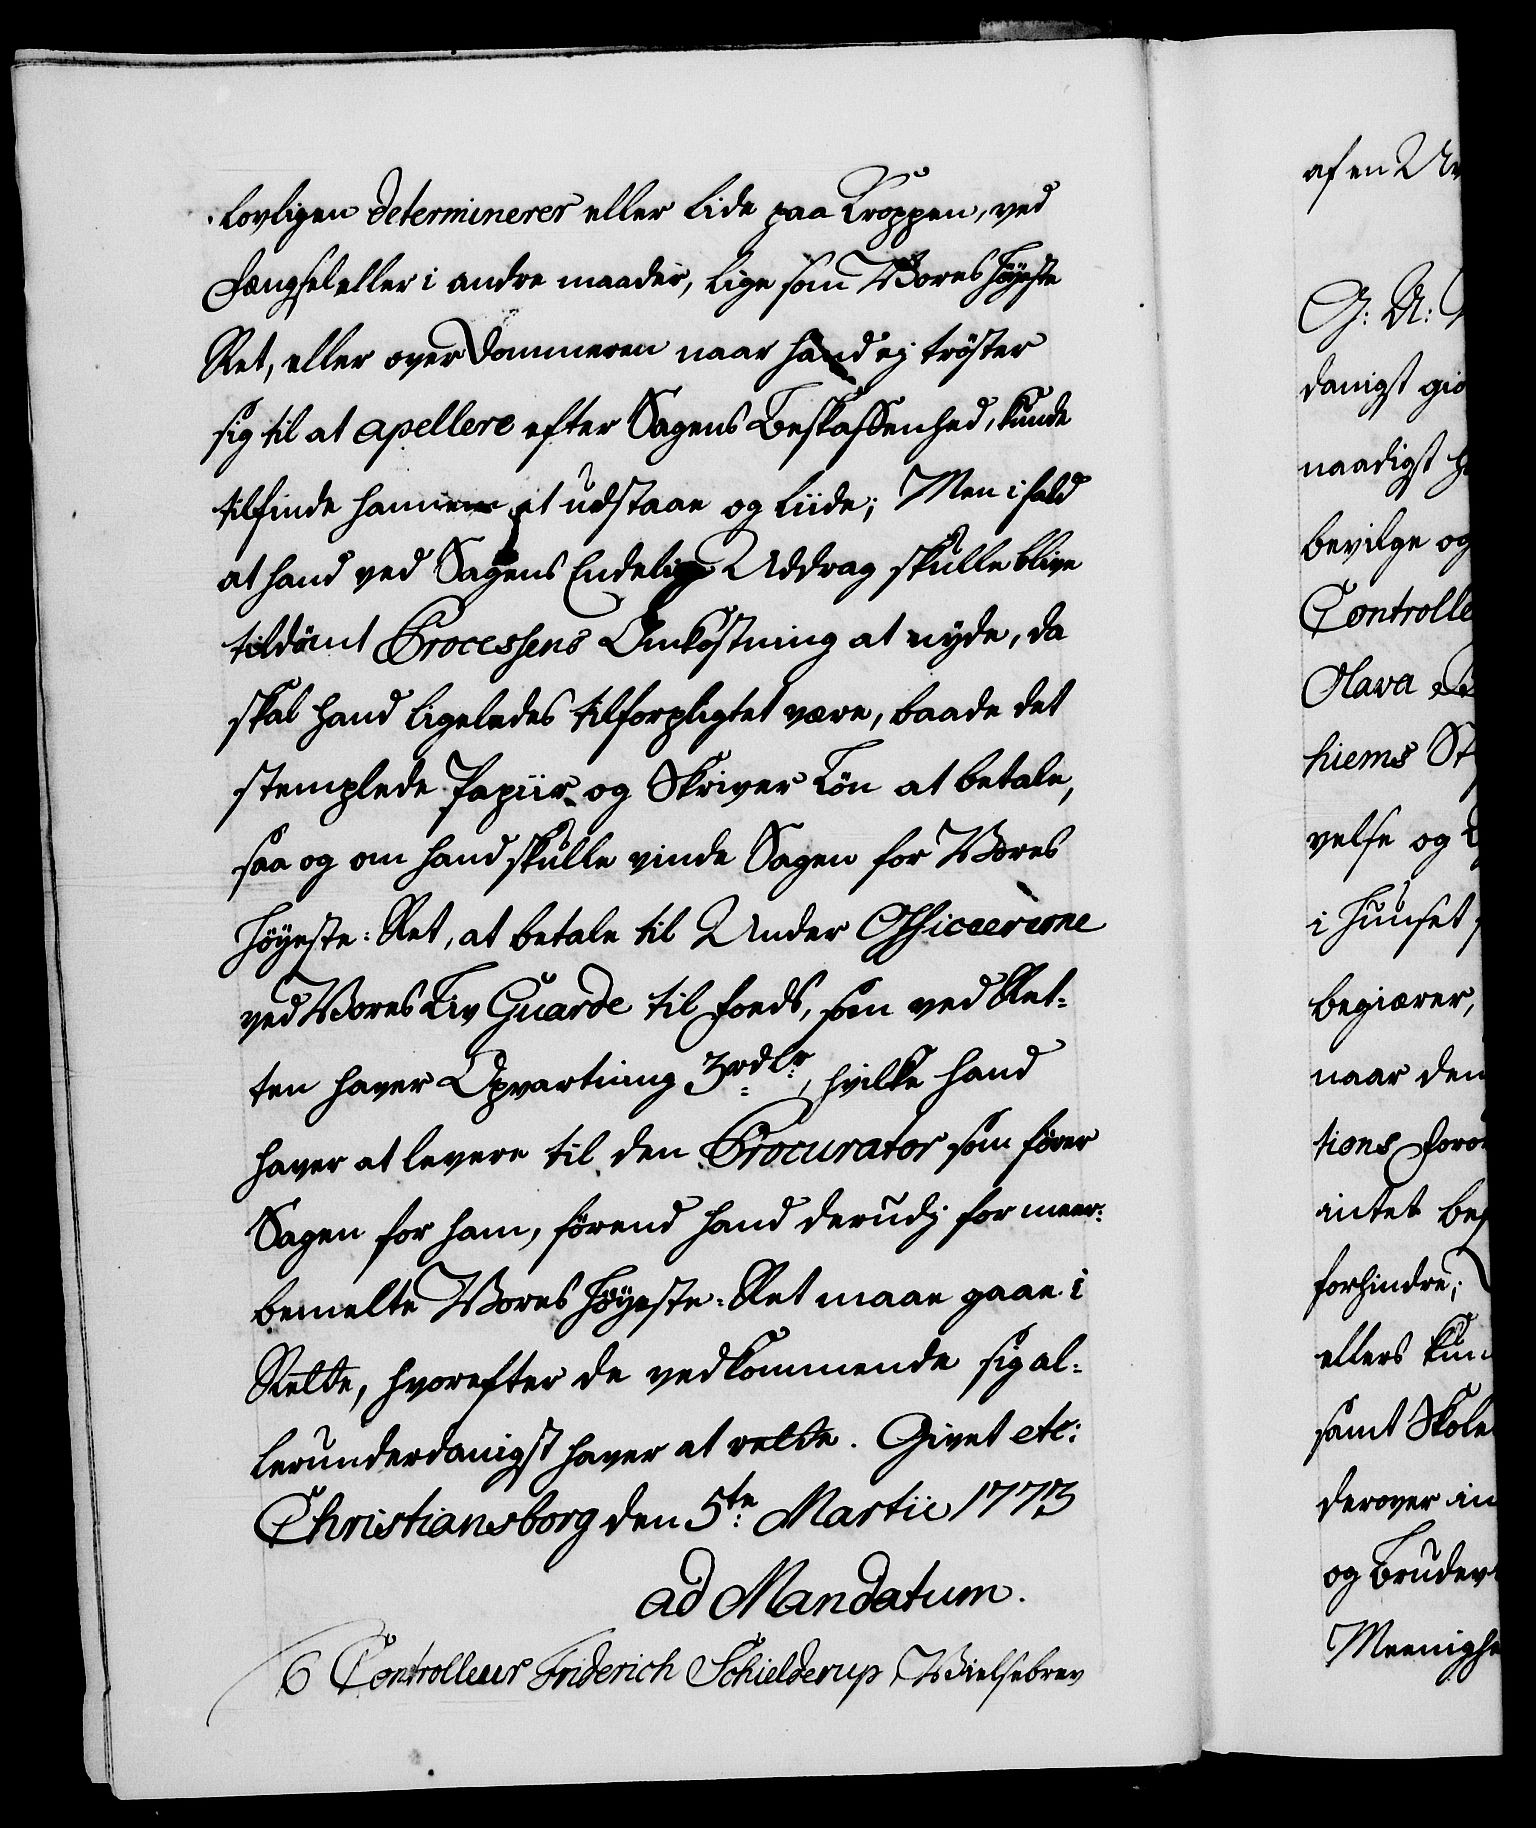 lovligen determinerer eller lide paa Kroppen, ved
Fængsel eller i andre maader, lige som Vores Höyeste
Ret, eller over Dommeren naar hand ej tröster
sig til at apellere efter Sagens Beskaffenhed, kunde
tilfinde hannem at udstaae og liide; Men i fald
at hand ved Sagens Endelige Uddrag skulle blive
tildömt Processens Omkostning at nyde, da
skal hand ligeledes tilforpligtet være, baade det
stemplede Papiir og Skriver Lön at betale,
saa og om hand skulle vinde Sagen for Vores
Höyeste: Ret, at betale til Under Officererne
ved Vores Liv Guarde til Foeds, som ved Ret-
ten haver Opvartning 3 rdlr, hvilke hand
haver at levere til den Procurator som förer
Sagen for ham, förend hand derudj for meer-
bemelte Vores Höyeste-Ret maae gaae i
Rette, hvorefter de vedkommende sig al-
lerunderdanigst haver at rette. Givet etc:
Christiansborg den 5te Martii 1773
ad Mandatum.
6 Controlleur Friderich Schielderup Vielsebrev
af en
G: A:
danigst
naadigst
bevilge og
Olava
hiems
velse og
i Huuset
begiærer,
naar den
tions
intet
forhindre;
ellers
samt
derover
og